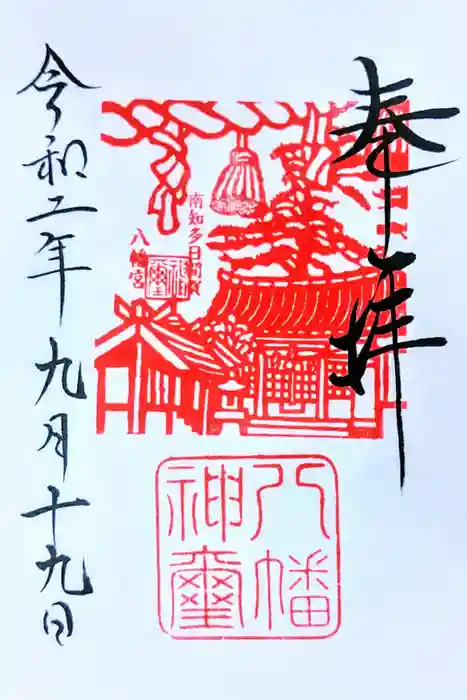 奉拝
南知多日間賀
八幡宮
八幡
神璽
令和二年九月十九日